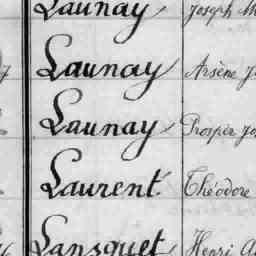 Launay Joseph
Launay Arsène
Launay Prosper
Laurent Théodore
Lansquet Henri